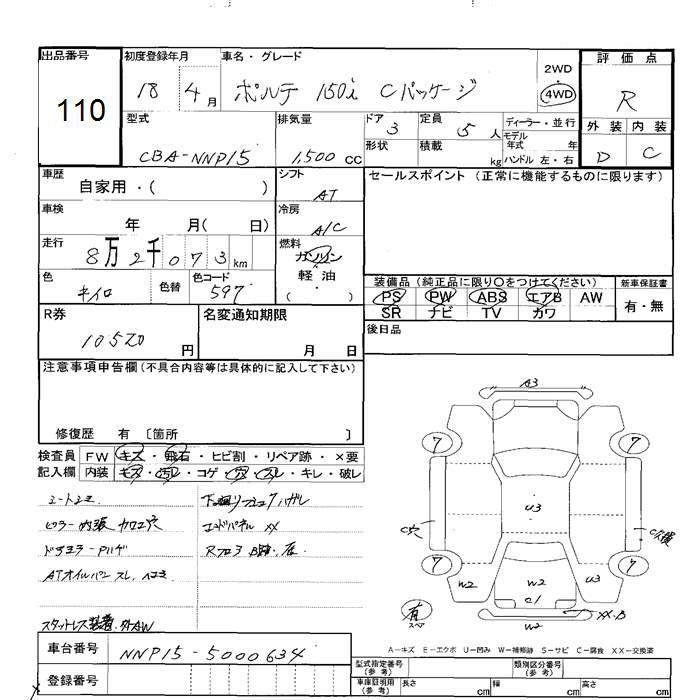 出品番号 初度登録年月 車名・グレード 2WD 評価点
110 18 4月 ポルテ 150i Cパッケージ 4WD R
型式 排気量 ドア 3 定員 5人 ディーラー・並行 外装 内装
CBA-NNP15 1,500cc 形状 積載 kg モデル年式 年 D C
ハンドル 左・右
車歴 シフト セールスポイント (正常に機能するものに限ります)
自家用・( ) AT
車検 冷房
年 月( 日) A/C
走行 燃料
8万2千073km ガソリン
軽油
( )
色 色替 色コード 装備品 (純正品に限り○をつけてください) 新車保証書
キイロ 597 PS PW ABS エアB AW 有・無
SR ナビ TV カワ
R券 名変通知期限 後日品
10520円 月 日
注意事項申告欄 (不具合内容等は具体的に記入して下さい)
修復歴 有 〔箇所 〕
検査員 FW キズ・飛石・ヒビ割・リペア跡・×要
記入欄 内装 キズ・汚レ・コゲ・穴・スレ・キレ・破レ
シートシミ
ピラー内張加工穴
ドアミラーPハゲ
ATオイルパン スレ、ヘコミ
スタットレス装着・外AW
エンドパネル XX
A3
7 7
U3
C穴
7 7
W2 W2 U3
C1
W2 XX.B
有
スペア
A-キズ E-エクボ U-凹み W-補修跡 S-サビ C-腐食 XX-交換済
車台番号 NNP15-5000634
登録番号
型式指定番号(参考) 類別区分番号(参考)
車庫証明用(参考) 長さ cm 幅 cm 高さ cm